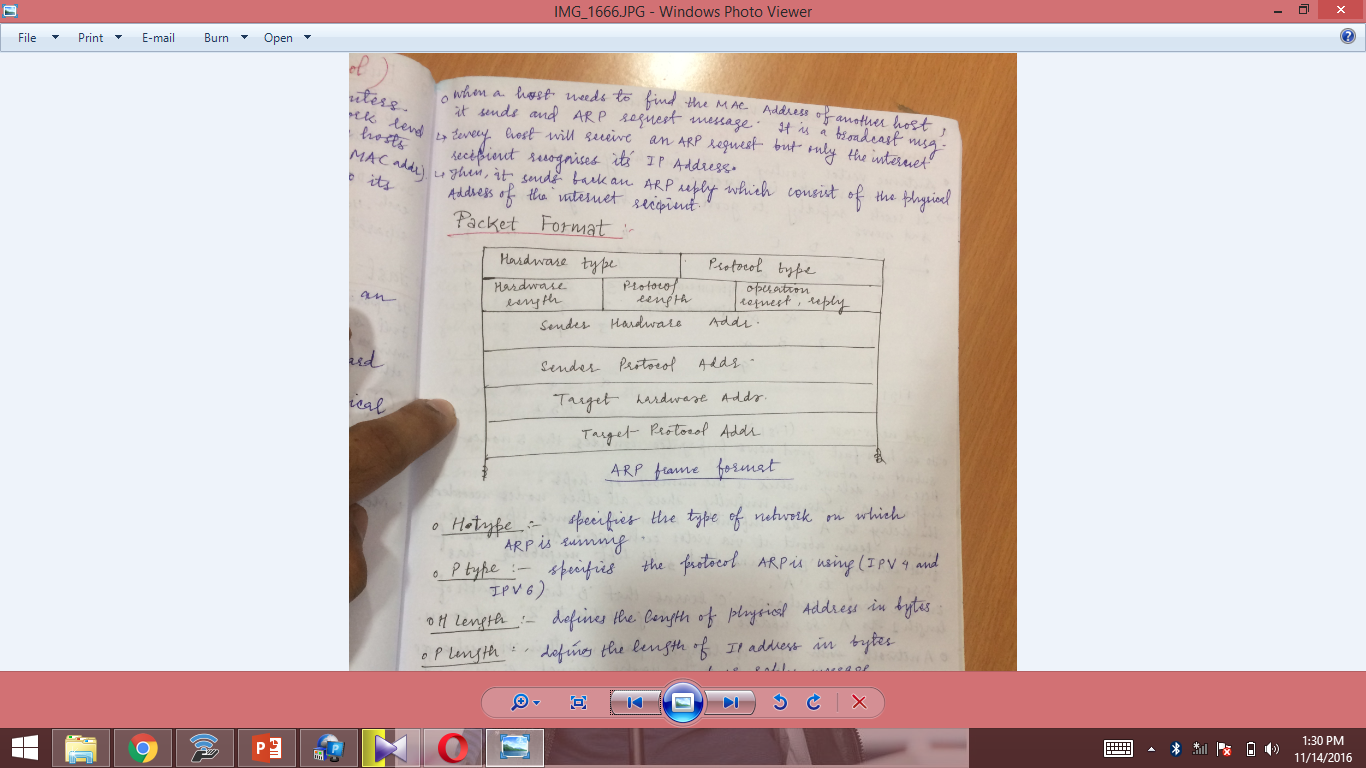 IMG_1666.JPG - Windows Photo Viewer
File Print E-mail Burn Open
ol)
uters.
ork lend
hosts
MAC addr)
o its
an
ard
ical
o When a host needs to find the MAC Address of another host,
it sends and ARP request message. It is a broadcast msg.
↳ Every host will receive an ARP request but only the internet
recipient recognises its IP Address.
↳ Then, it sends back an ARP reply which consist of the physical
Address of the internet recipient.
Packet Format :-
Hardware type Protocol type
Hardware length Protocol length operation request, reply
Sender Hardware Addr.
Sender Protocol Addr.
Target hardware Addr.
Target Protocol Addr
ARP frame format
o H.type :- specifies the type of network on which
ARP is running
o P type :- specifies the protocol ARP is using (IPV 4 and
IPV 6)
o H Length :- defines the length of physical Address in bytes
o P Length :- defines the length of IP address in bytes
message
1:30 PM
11/14/2016